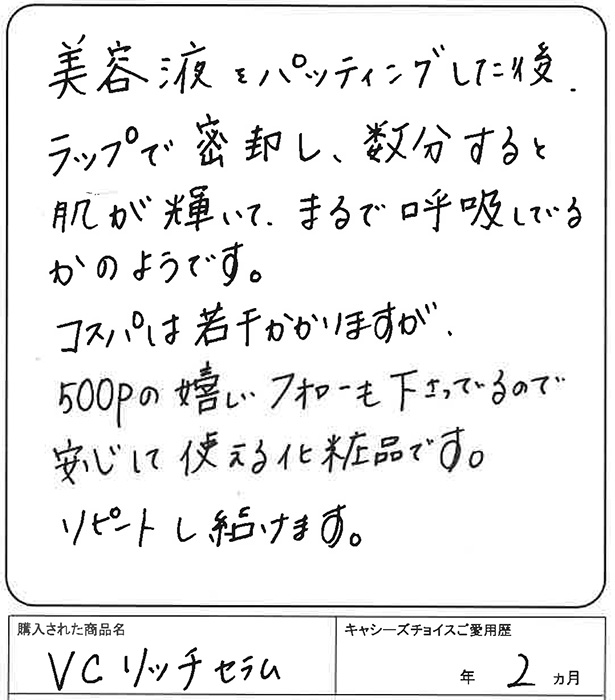 美容液をパッティングした後、
ラップで密却し、数分すると
肌が輝いて、まるで呼吸している
かのようです。
コスパは若干かかりますが、
500Pの嬉しいフォローも下さっているので
安心して使える化粧品です。
リピートし続けます。
購入された商品名
VCリッチセラム
キャシーズチョイスご愛用歴
年 2 ヵ月